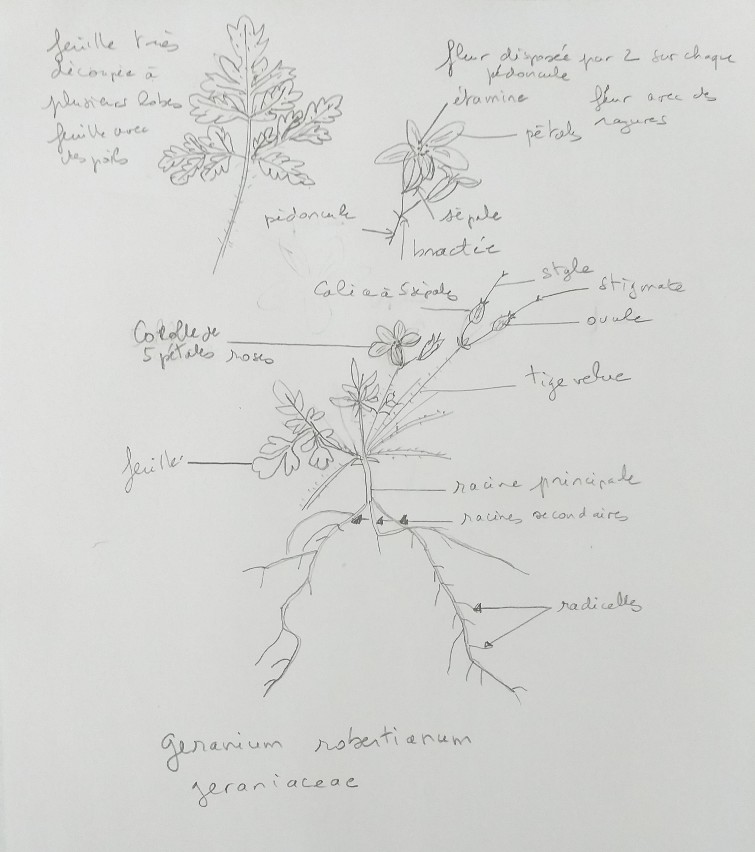 feuille très
découpée à
plusieurs lobes
feuille avec
des poils
fleur disposée par 2 sur chaque
pédoncule
étamine
fleur avec des
rayures
pétals
pédoncule
sépale
bractée
Calice à 5 sépales
style
stigmate
ovule
Corolle de
5 pétales roses
tige velue
feuille
racine principale
racines secondaires
radicelles
Geranium robertianum
geraniaceae